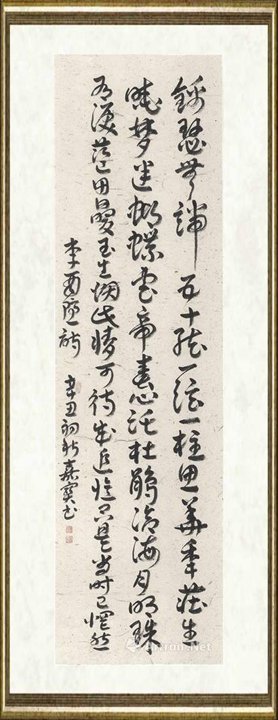 錦瑟無端五十弦一弦一柱思華年莊生
曉夢迷蝴蝶望帝春心託杜鵑滄海月明珠
有淚藍田日暖玉生烟此情可待成追憶只是當時已惘然
李商隱詩 辛丑初秋嘉實書